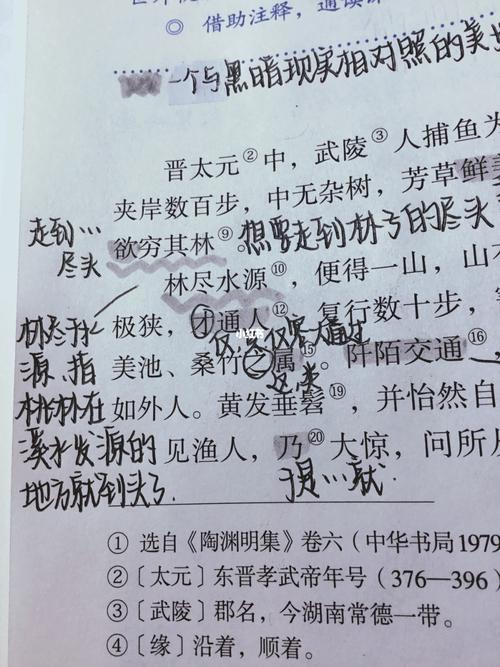 ◎ 借助注释，通读课
一个与黑暗现实相对照的美
晋太元②中，武陵③人捕鱼为
夹岸数百步，中无杂树，芳草鲜美
走到…尽头
欲穷其林⑨。
想要走到林子的尽头
林尽水源⑩，便得一山，山
极狭，才通人⑫。复行数十步，
仅 仅容一人通过
林尽于水源，指桃林在溪水发源的地方就到头了.
美池、桑竹之属⑮。阡陌交通⑯
这类
如外人。黄发垂髫⑲，并怡然自
见渔人，乃⑳大惊，问所
于是…就
小红书
① 选自《陶渊明集》卷六（中华书局1979
②〔太元〕东晋孝武帝年号（376—396）
③〔武陵〕郡名，今湖南常德一带。
④〔缘〕沿着，顺着。